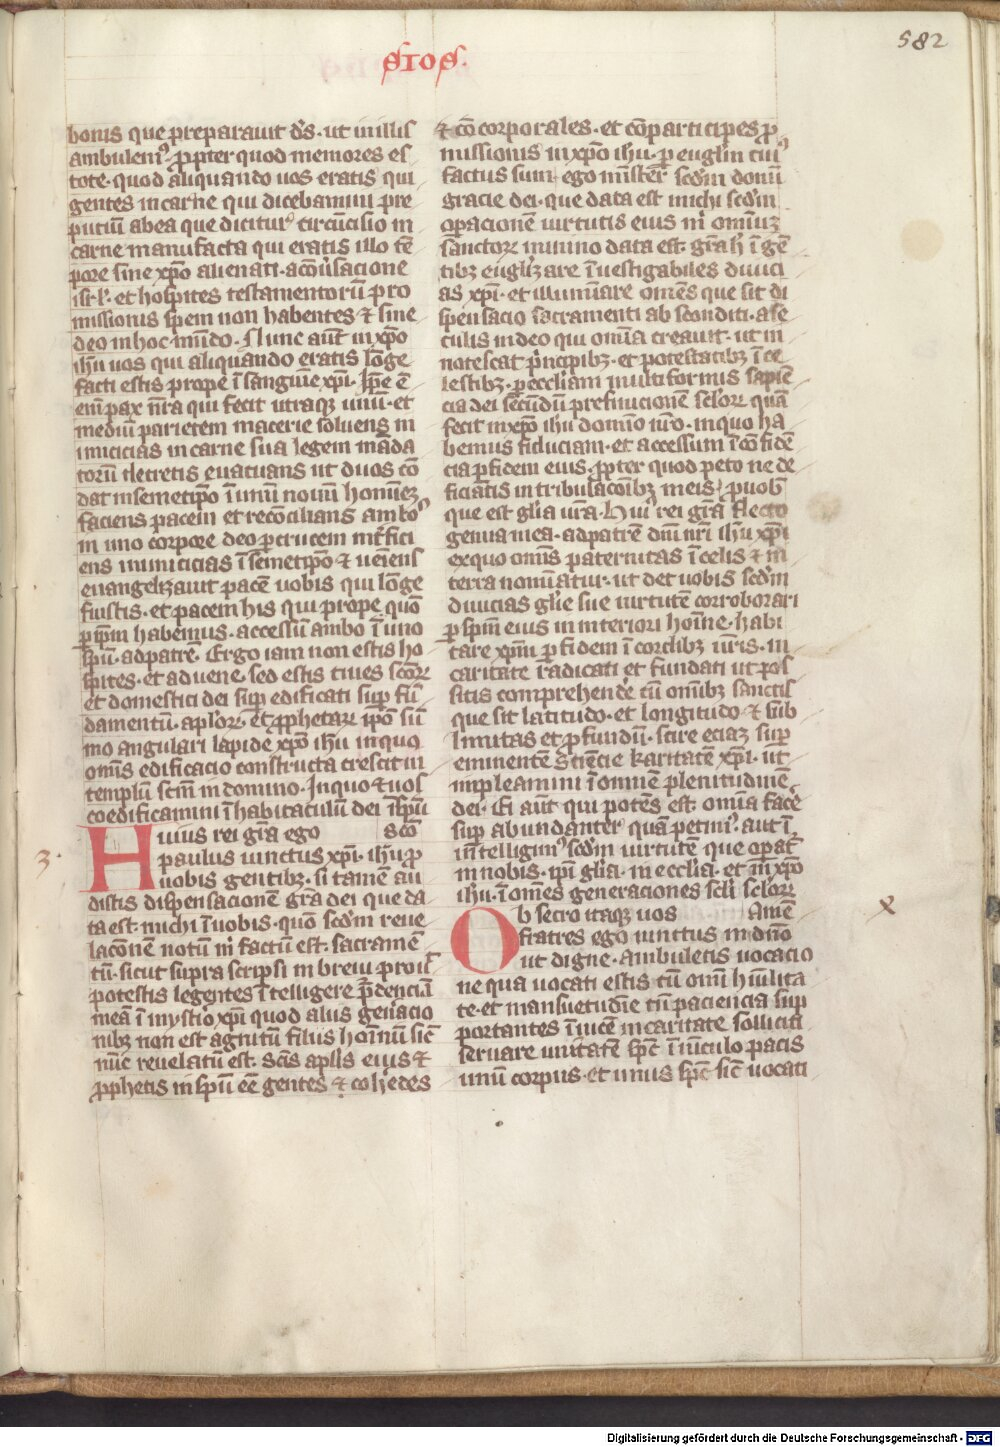 582
sios.
bonis que preparauit ds̄. ut in illis
ambulemꝰ. propter quod memores es
tote. quod aliquando uos eratis qui
gentes in carne qui dicebamini pre
putiū ab ea que dicitur circūcisio in
carne manufacta qui eratis illo tē
pore sine xp̄o alienati. a cōuersacione
isrl. et hospites testamentorū pro
missionis spem non habentes & sine
deo in hoc mūdo. Nunc aūt in xp̄o
ih̄u uos qui aliquando eratis lōge
facti estis prope ī sanguine xp̄i. Ip̄e ē
em̄ pax nr̄a qui fecit utraqꝫ unū. et
mediū parietem macerie soluens in
imicicias in carne sua legem māda
torū decretis euacuans ut duos cō
dat in semetip̄o ī unū nouū hominē
faciens pacem et recōcilians ambo
in uno corpore deo ꝑ crucem int̄fici
ens inimicicias ī semetip̄o & ueniens
euangelizauit pacē uobis qui lōge
fuistis. et pacem his qui prope quō
ꝑ ip̄m habemus. accessū ambo ī uno
spū. ad patrē. Ergo iam non estis ho
spites. et aduene. sed estis ciues scōꝝ
et domestici dei suꝑ edificati suꝑ fū
damentū. aplōꝝ. et prophetaꝝ ip̄o sū
mo angulari lapide xp̄o ih̄u in quo
om̄is edificacio constructa crescit in
templū scm̄ in domino. In quo & uos
coedificamini ī habitaculū dei ī spū
3. Huius rei grā ego scō
paulus uinctus xp̄i. ih̄u pro
uobis gentibꝫ. si tamē au
distis dispensacionē grā dei que da
ta est michi ī uobis. quō scdm̄ reue
lacōnē notū m̄ factū est. sacramē
tū. sicut supra scripsi in breui prout
potestis legentes ītelligere prudenciā
meā ī mysterio xp̄i quod aliis generacio
nibꝫ non est agnitū filiis hoīnū sic̄
nūc reuelatū est. scīs apl̄is eius &
prophetis in spū eē gentes & coheredes
& cōcorporales. et cōparticipes pro
missionis in xp̄o ih̄u. ꝑ euglm̄ cuiꝰ
factus sum ego minister scdm̄ donū
gracie dei. que data est michi scdm̄
oꝑacionē uirtutis eius m̄ omniū
sanctoꝝ minimo data est grā h̄ ī gē
tibꝫ euglizare īuestigabiles diuici
as xp̄i. et illuminare om̄es que sit di
spensacio sacramenti absconditi. a se
culis in deo qui omnia creauit. ut in
notescat principibꝫ. et potestatibꝫ ī ce
lestibꝫ. ꝑ eccliam multiformis sapiē
cia dei secūdū prefinicionē scloꝝ quā
fecit in xp̄o ih̄u domino nr̄o. in quo ha
bemus fiduciam. et accessum ī cōfidē
cia ꝑ fidem eius. propter quod peto ne de
ficiatis in tribulacōibꝫ meis. pro uob̄
que est glīa ur̄a. Huiꝰ rei grā flecto
genua mea. ad patrē dnī nr̄i ih̄u xp̄i
ex quo om̄is paternitas ī celis & in
terra nominatur. ut det uobis scdm̄
diuicias glīe sue uirtutē corroborari
ꝑ spm̄ eius in interiori hoīne. habi
tare xp̄m ꝑ fidem ī cordibꝫ ur̄is. in
caritate radicati et fundati ut pos
sitis comprehendere cū omībꝫ sanctis
que sit latitudo. et longitudo & sub
limitas et profundū. scire eciaꝫ suꝑ
eminentē sciencie karitatē xp̄i. ut
impleamini ī omnē plenitudinē
dei. Ei aūt qui potens est omīa facere
suꝑ abundanter quā petimꝰ. aut ī
intelligimꝰ scdm̄ uirtutē que oꝑat̄
in nobis. ip̄i glīa. in ecclīa. et in xp̄o
ih̄u. ī om̄es generaciones scli scloꝝ
Obsecro itaqꝫ uos Amē x
fratres ego uinctus in dn̄o
ut digne. ambuletis uocacio
ne qua uocati estis cū omī humilita
te et mansuetudīe cū paciencia sup
portantes īuicē in caritate solliciti
seruare unitatē spc̄ ī uinculo pacis
unū corpus. et unus spc̄ sic̄ uocati
Digitalisierung gefördert durch die Deutsche Forschungsgemeinschaft - DFG